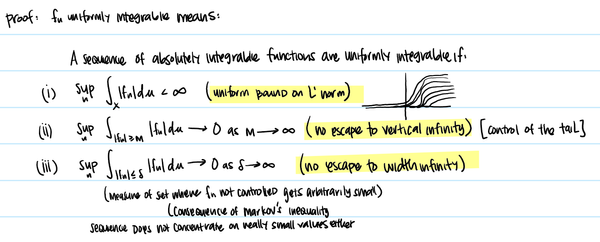 proof: fn uniformly integrable means:
A sequence of absolutely integrable functions are uniformly integrable if:
(i) sup_n ∫_X |fn| dμ < ∞ (uniform bound on L¹ norm)
(ii) sup_n ∫_{|fn|≥M} |fn| dμ → 0 as M → ∞ (no escape to vertical infinity) [control of the tail]
(iii) sup_n ∫_{|fn|≤δ} |fn| dμ → 0 as δ → ∞ (no escape to width infinity)
(measure of set where fn not controlled gets arbitrarily small)
(consequence of Markov's inequality
sequence does not concentrate on really small values either